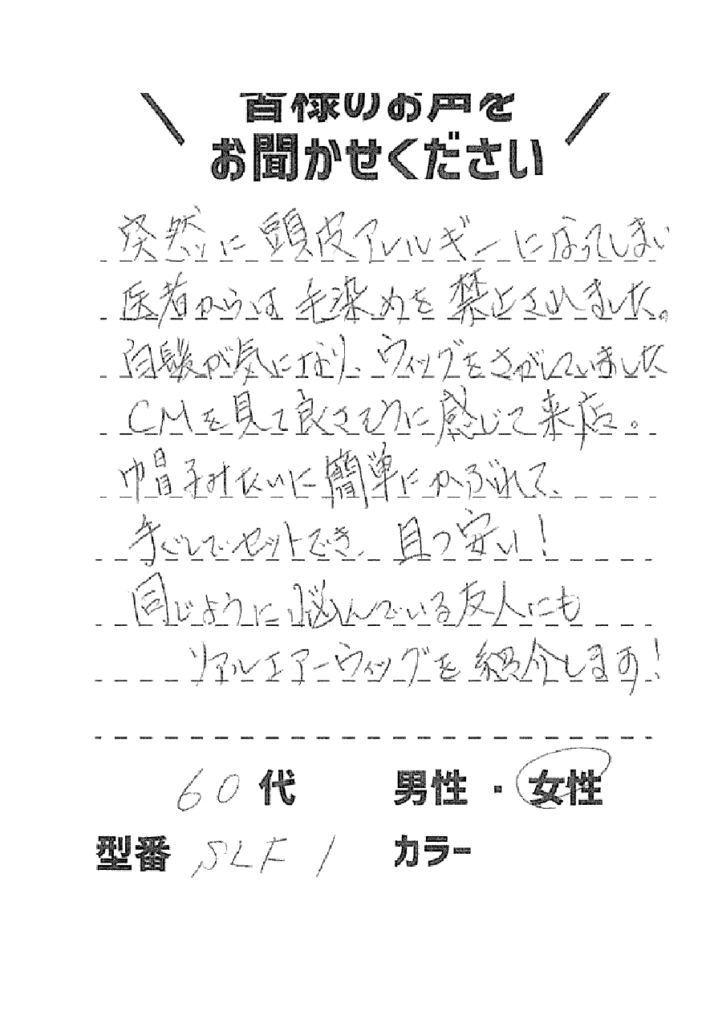 皆様のお声を
お聞かせください
突然に頭皮アレルギーになってしまい
医者からは毛染めを禁止されました。
白髪が気になり、ウィッグをさがしていました
CMを見て良さそうに感じて来店。
帽子みたいに簡単にかぶれて、
手ぐしでセットでき、且つ安い!
同じように悩んでいる友人にも
リアルエアーウィッグを紹介します!
60代 男性・女性
型番 SLF1 カラー